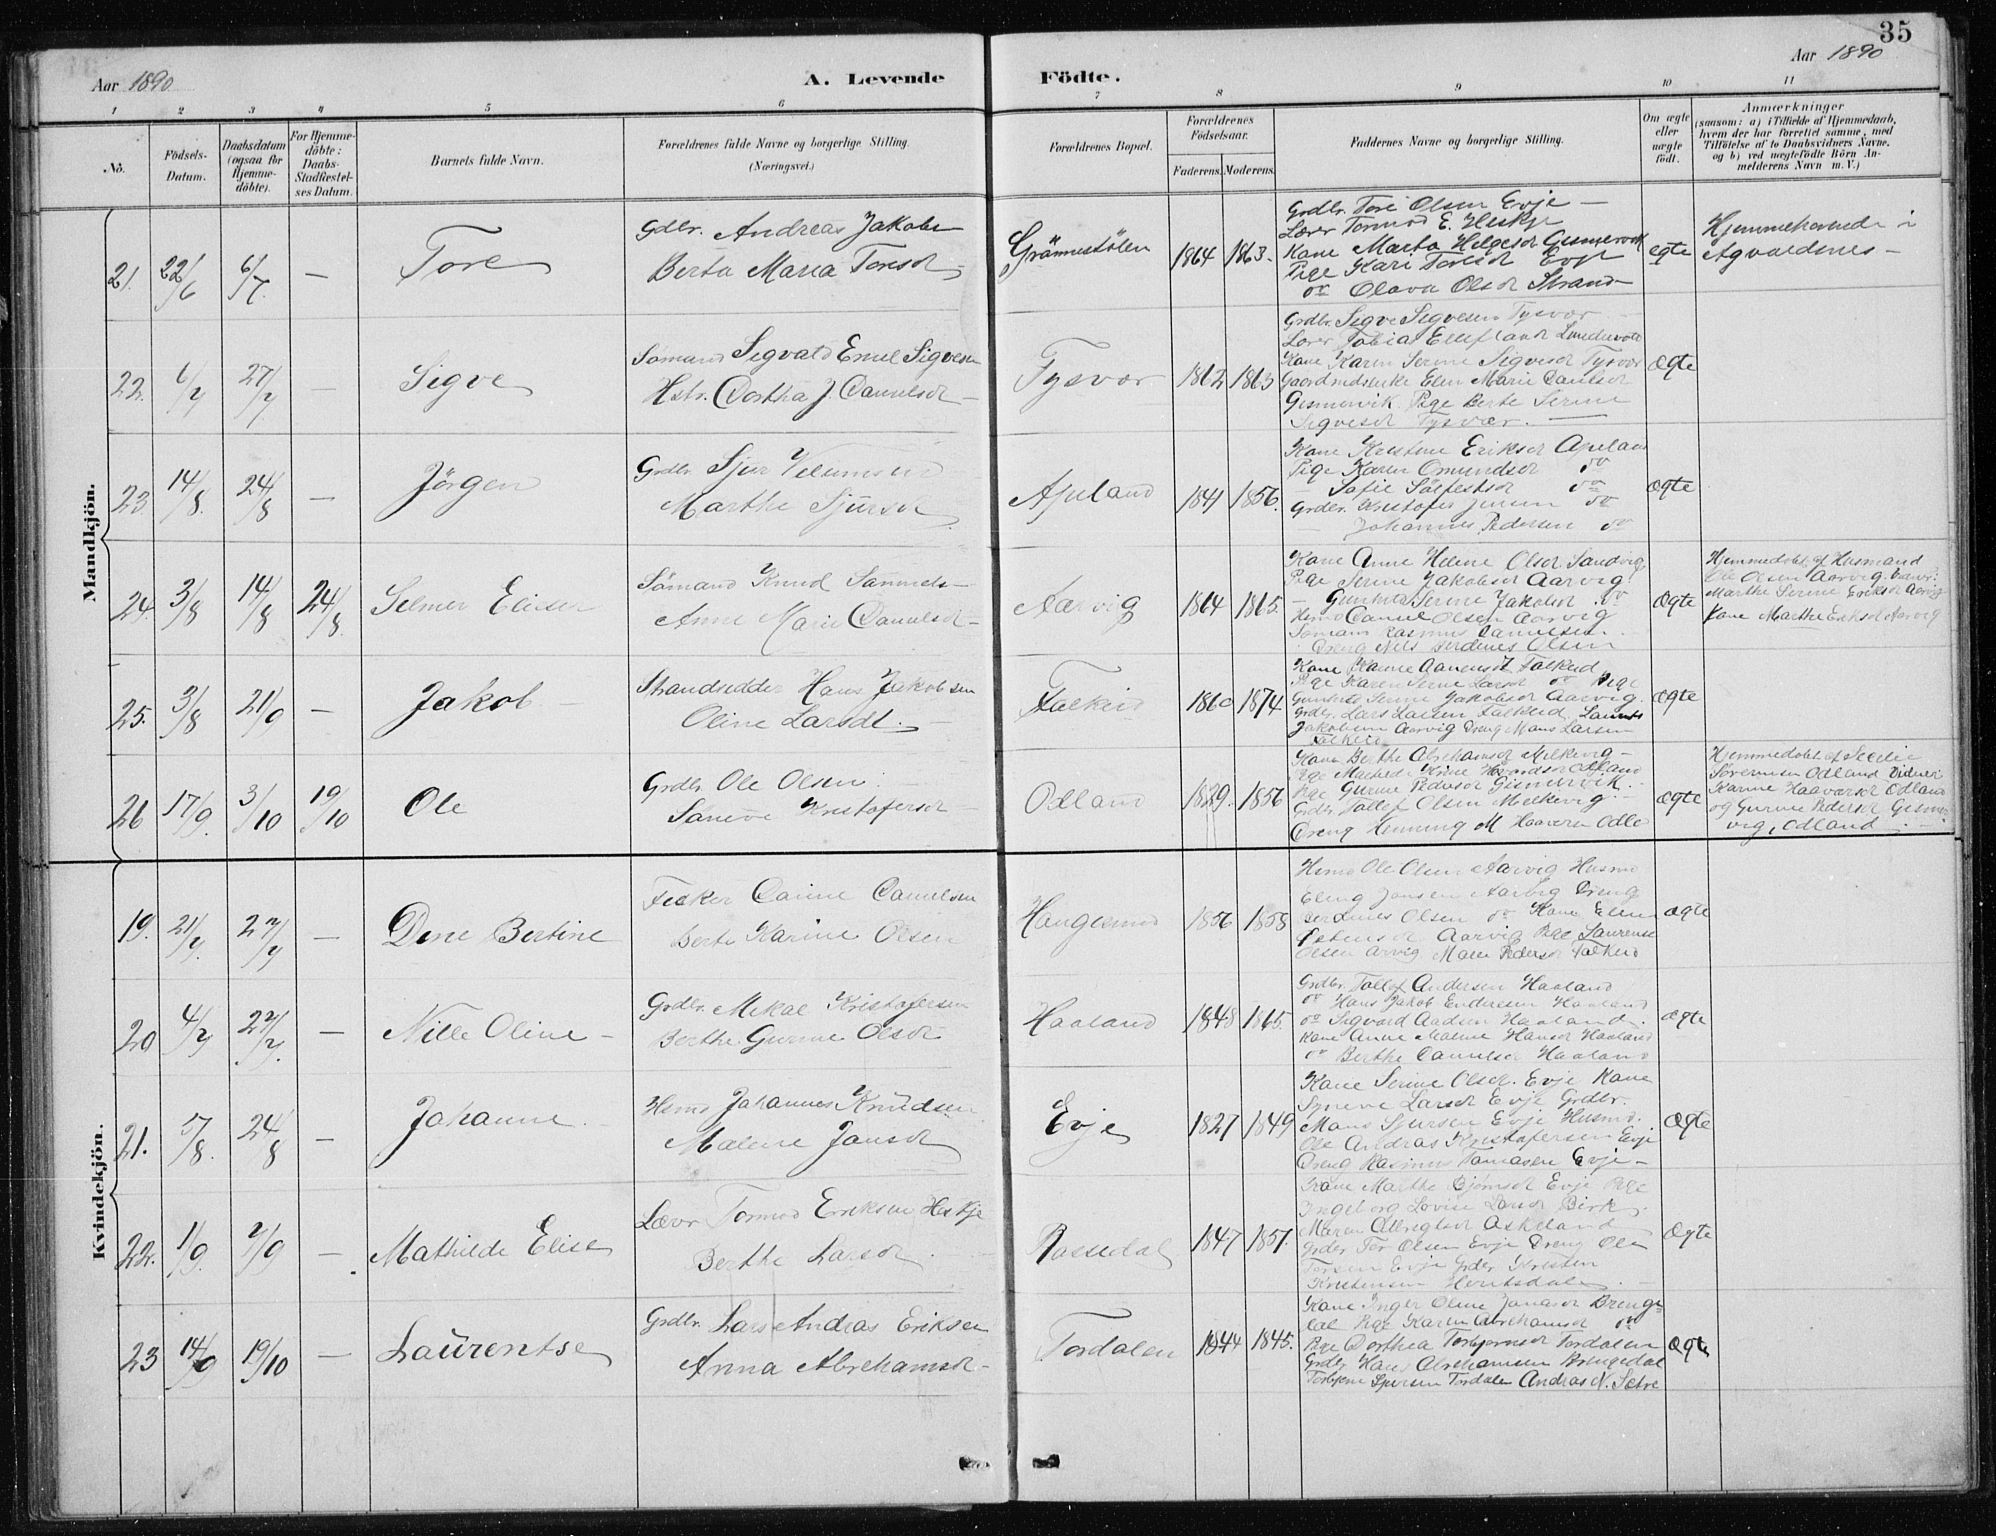 35
Aar 1890
A. Levende
Födte.
Aar 1890
1 2 3 4 5 6 7 8 9 10 11
No.
Födsels-Datum.
Daabsdatum (ogsaa for Hjemme-döbte).
For Hjemme-döbte: Daabs-Stadfæstel-ses Datum.
Barnets fulde Navn.
Forældrenes fulde Navne og borgerlige Stilling.
(Næringsvei.)
Forældrenes Bopæl.
Forældrenes Födselsaar.
Faderens. Moderens.
Faddernes Navne og borgerlige Stilling.
Om ægte eller uægte födt.
Anmærkninger
(saasom: a) i Tilfælde af Hjemmedaab,
hvem der har forrettet samme, med
Tilföielse af to Daabsvidners Navne,
og b) ved uægtefödte Börn An-
melderens Navn m. V.)
Mandkjön.
21. 22/6 6/7. — Tore
Gdbr. Andreas Jakobs
Berta Maria Toresdr
Grönnestölen 1864 1863.
Grdbr. Tore Olsen Evje —
Lærer Tormod E. Heskje
Kone Marta Helgesdr Gismervik
Pige Kari Toresdr Evje
do Olava Olsdr Strand
ægte
Hjemmehörende i
Agvaldsnes —
22. 6/7 27/7 — Sigve
Sömand Sigvald Emil Sigvesen
Hstr. Dorthea J. Danielsdr —
Tysvær 1862 1863
Grdbr. Sigve Sigvesen Tysvær
Kone Karen Serine Sigvesdr Tysvær
Elen Marie Danielsdr
Gismervik Pige Berte Serine
Sigvesdr Tysvær. —
ægte
23. 14/8. 24/8 — Jörgen
Grdbr. Sjur Villumsen
Marthe Sjursdr
Apeland 1841 1856.
Kone Kristine Eriksdr Apeland
Pige Karen Omundsdr do
— Sofie Sölfestsdr do
Grdbr. Kristofer Jensen do
Johannes Pedersen do
ægte
24. 3/8 14/8 24/8. Selmer Eliser
Sömand Knud Samuels —
Anne Marie Danielsdr —
Aarvig 1864 1865.
Kone Anne Helene Olsdr Sandvig
Pige Serine Jakobsdr Aarvig
— Gunhild Serine Jakobsdr do
Hsmd Daniel Olsen Aarvig
Sömand Rasmus Danielsen
Dreng Nils Berdines Olsen
ægte
Hjemmedöbt af Husmand
Ole Olsen Aarvig.
Marthe Serine Eriksdr Aarvig
Kone Marthe Eriksdr Aarvig
25. 3/8 21/9 — Jakob —
Strandsidder Hans Jakobsen
Oline Larsdt. —
Falkeid 1860 1874
Kone Hanne Aanensdt Falkeid
Pige Karen Serine Larsdr do Pige
Gunhild Serine Jakobsdr Aarvig.
Grdbr. Lars Larsen Falkeid
Jakobsen Aarvig Dreng Mons Larsen
Falkeid
ægte
26 17/9. 3/10 19/10 Ole
Grdbr. Ole Olsen —
Saneve Kristofersdr
Odland 1829. 1856
Kone Berthe Abrehamsdr Milkevig —
Pige Gurine Pedersdr Gismervik. —
Grdbr. Tollef Olsen Melkevig —
Dreng Henning M Haaversen Odla
ægte
Hjemmedöbt af
Sörensen Odland Vidner
Karine Haavarsdr Odland
og Gurine Pedersdr Gismer
vig, Odland. —
Kvindekjön.
19. 21/7. 27/7 — Dine Bertine
Fisker Danie Danielsen
Berte Karine Olsen
Haugesund 1856 1858
Hsmd Ole Olsen Aarvig Husmd
Eling Jansen Aarvig Dreng
Berdines Olsen do Kone Elen
Aarvig Pige Laurense
Olsen Arvig Maren Pedersdr Falkeid
ægte
20 4/7 27/7. — Nille Oline —
Grdbr. Mikal Kristofersen
Berthe Gurine Olsdr
Haaland 1848 1865.
Grdbr. Tollef Andersen Haaland
do Hans Jakob Endresen Haaland
do Sigvard Aadsen Haaland.
Kone Anne Malene Hansdr Haaland
do Berthe Danielsdr Haaland
ægte
21. 5/8. 24/8 — Johanne.
Hsmd Johannes Knudsen
Malene Jansdr
Evje 1827 1849
Kone Serine Olsdr. Evje Kone
Syneve Larsdr Evje Grdbr.
Mons Sjursen Evje Husmd.
Ole Andras Kristofersen Evje
Dreng Rasmus Tomasen Evje —
ægte
22. 1/9. 7/9 — Mathilde Elise
Lærer Tormod Eriksen Heskje
Berthe Larsdr.
Rossedal 1847 1857.
Kone Marthe Bjørnsdr Evje Pige
Ingeborg Lovise Larsdr Birk.
Maren Albregtsdr Askeland
Grdbr Tor Olsen Evje Dreng Ole
Torsen Evje Grdbr Kristen
Kristensen
ægte
23 14/9 19/10 — Laurentse
Grdbr. Lars Andras Eriksen
Anna Abrehamsdr —
Tordalen 1844 1845.
Kone Inger Oline Jonasdr Brenge
dal Pige Karen Abrehamsdr do
Pige Dorthea Torbjørnsdr Tordalen
Grdbr Hans Abrehamsen Brengedal
Torbjørn Sjursen Tordalen Andras N. Sætre
ægte